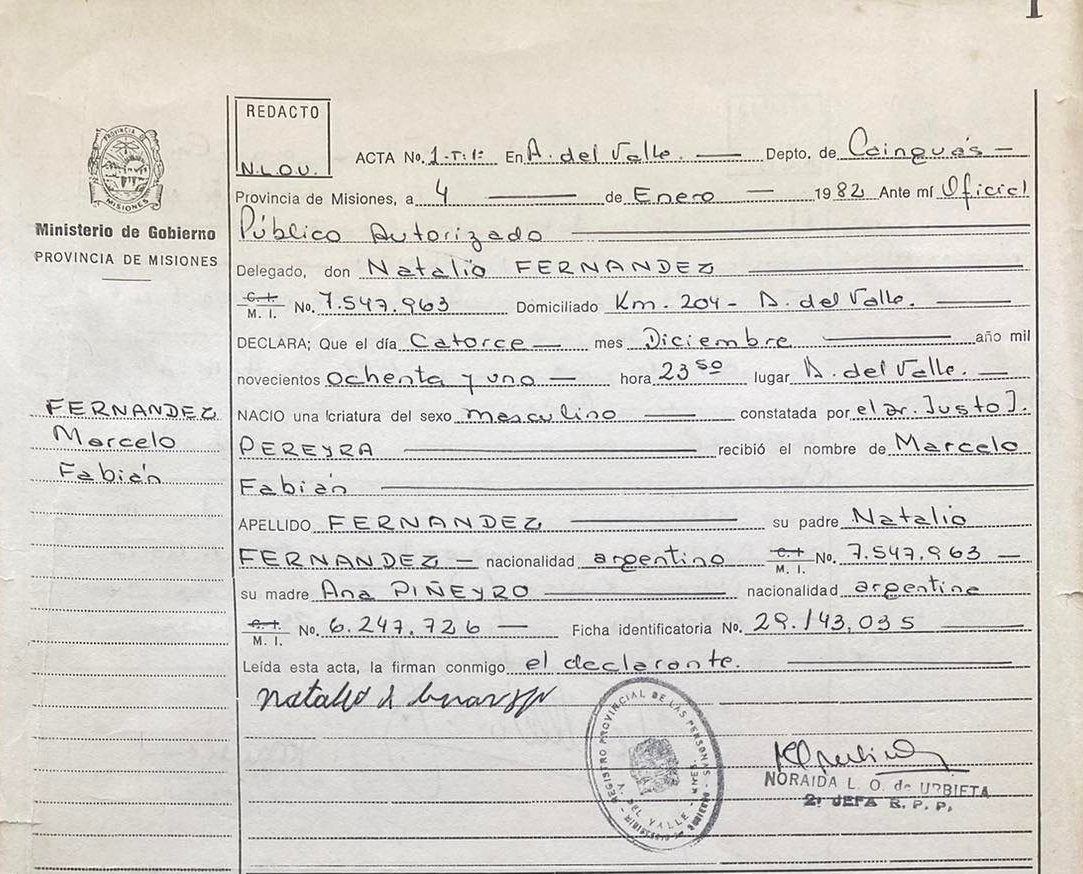 1
REDACTO
N.L.O.U.
PROVINCIA DE
MISIONES
Ministerio de Gobierno
PROVINCIA DE MISIONES
FERNANDEZ
Marcelo
Fabián
ACTA No. 1-T:1: En A. del Valle. Depto. de Cainguás
Provincia de Misiones, a 4 de Enero 1982 Ante mí Oficial
Público Autorizado
Delegado, don Natalio FERNANDEZ
C. I. M. I. No. 7.547.963 Domiciliado Km. 204 - A. del Valle.
DECLARA; Que el día Catorce mes Diciembre año mil
novecientos ochenta y uno hora 23 50 lugar A. del Valle.
NACIO una criatura del sexo masculino constatada por el dr. Justo J.
PEREYRA recibió el nombre de Marcelo
Fabián
APELLIDO FERNANDEZ su padre Natalio
FERNANDEZ nacionalidad argentino C. I. M. I. No. 7.547.963
su madre Ana PIÑEYRO nacionalidad argentina
C. I. M. I. No. 6.247.726 Ficha identificatoria No. 29.143.035
Leída esta acta, la firman conmigo el declarante.
REGISTRO PROVINCIAL DE LAS PERSONAS
A. DEL VALLE
NORAIDA L. O. de URBIETA
2: JEFA R. P. P.